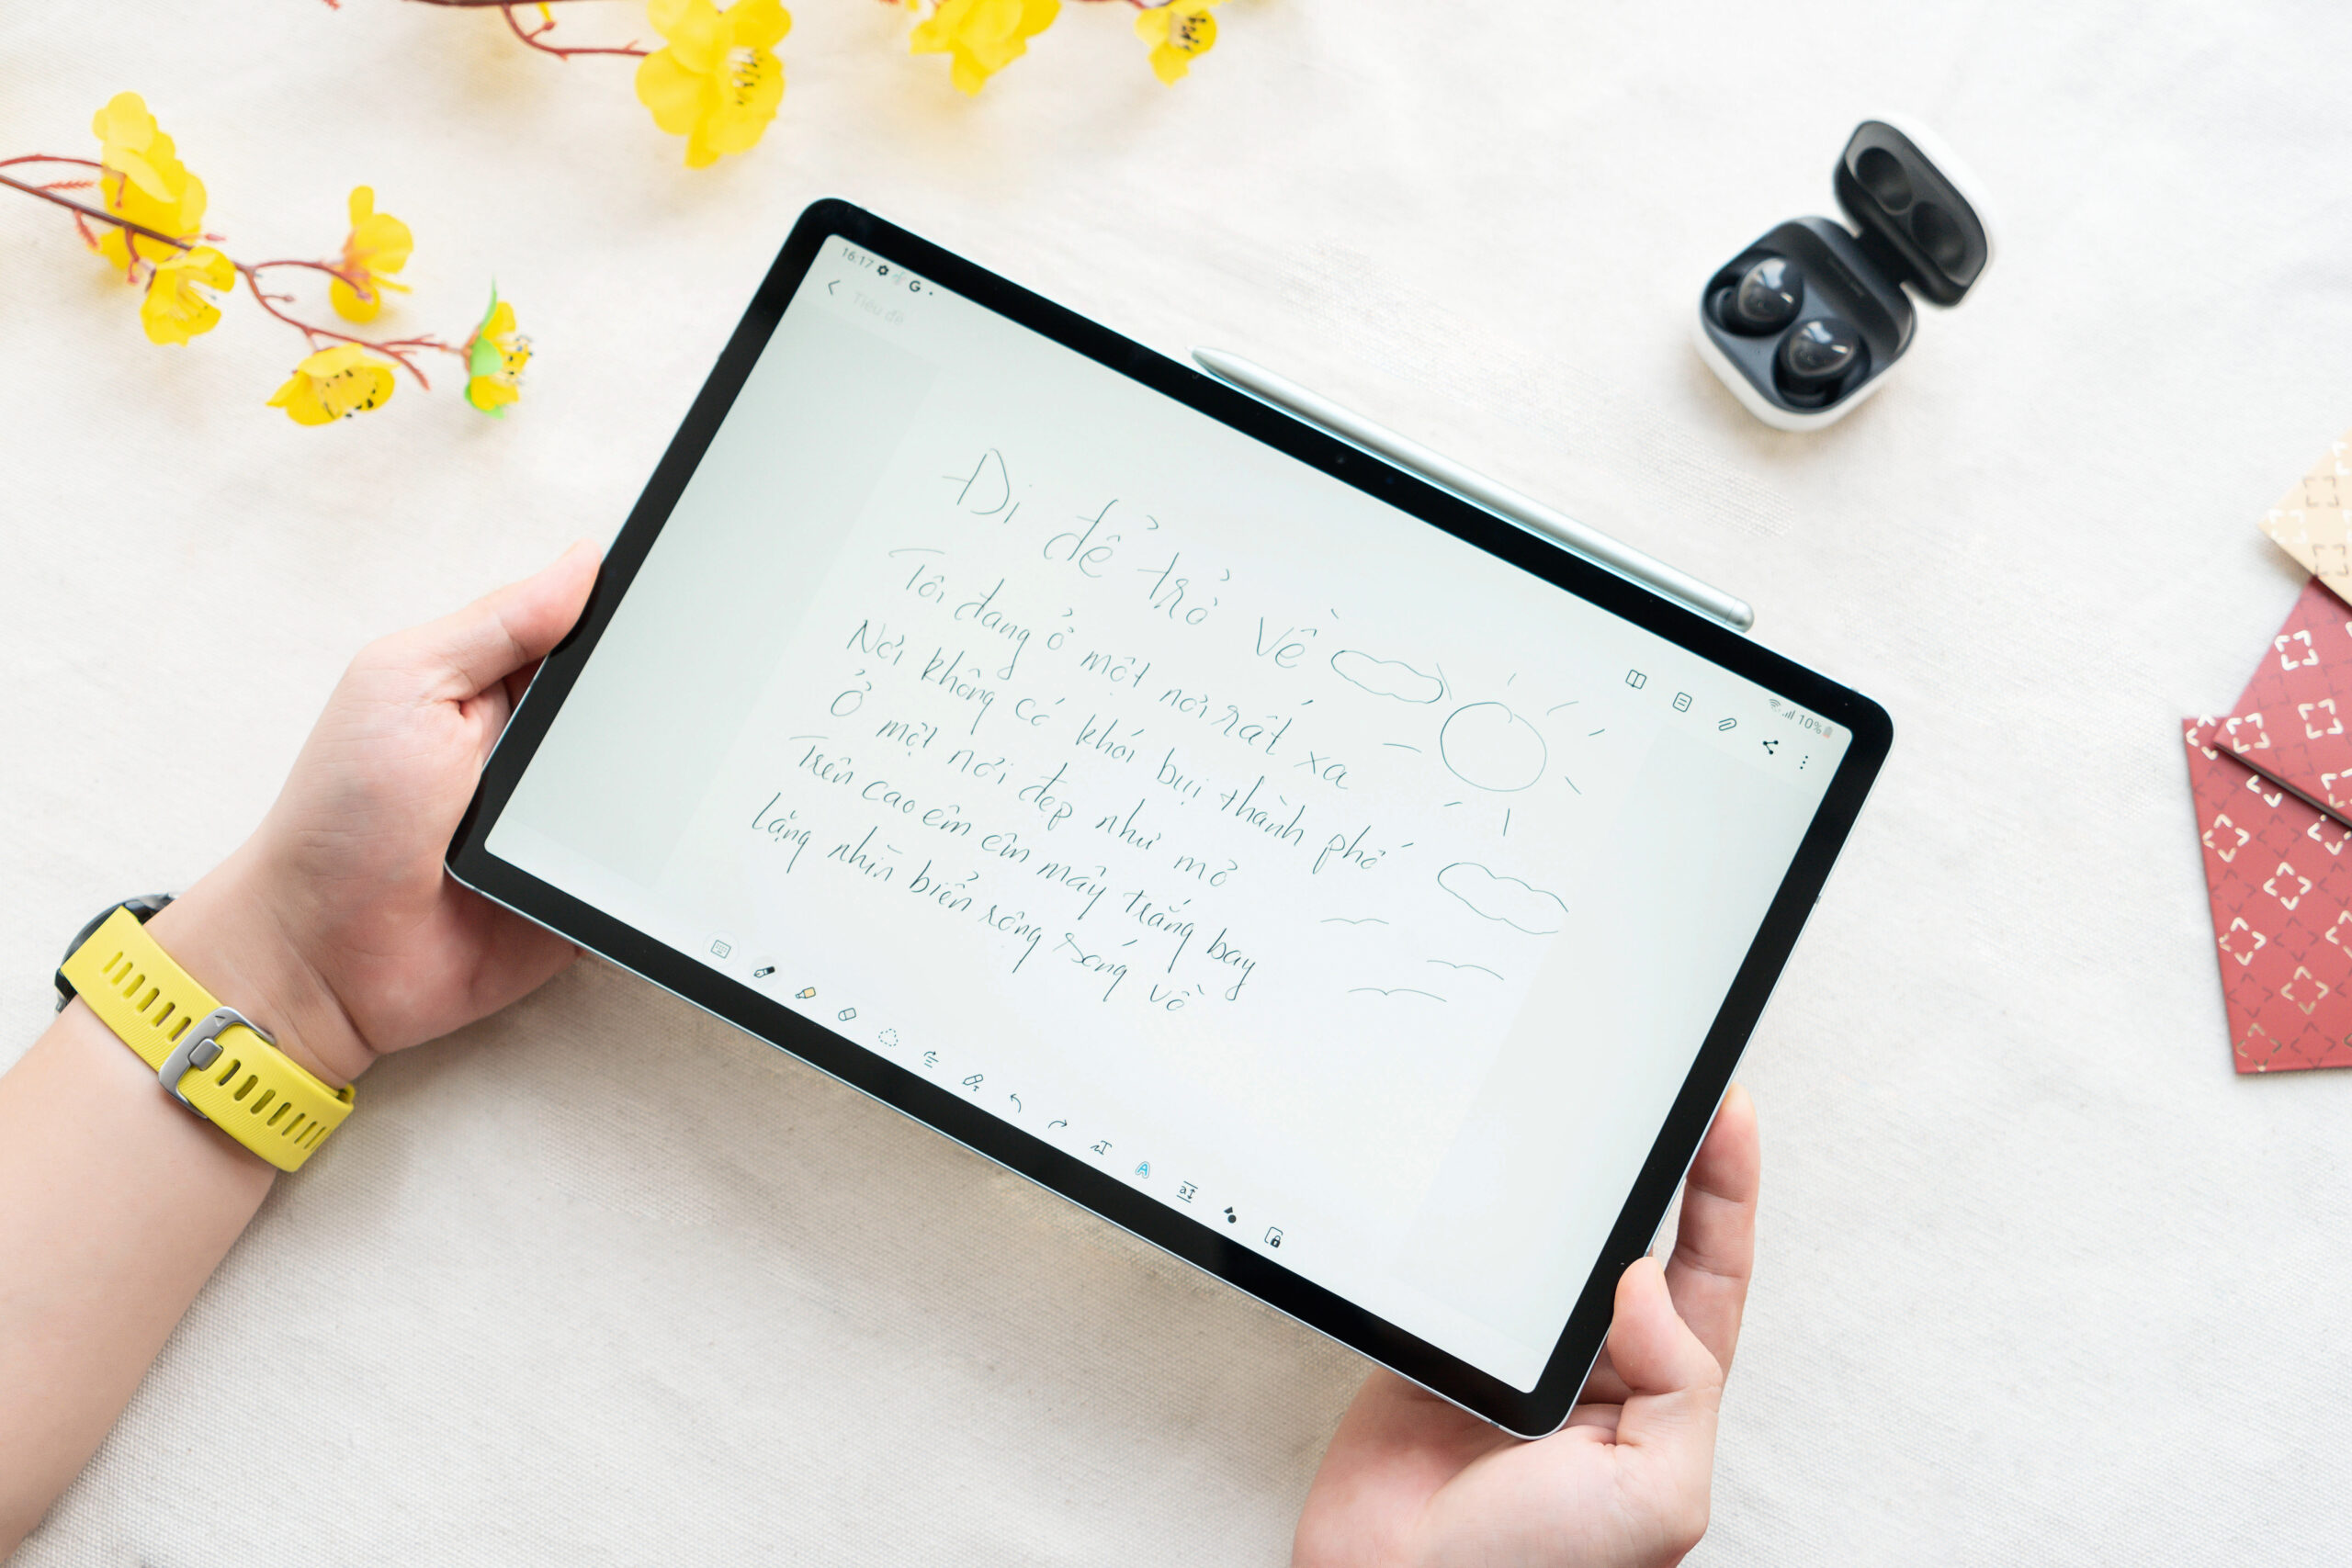 16:17 G
10%
Tiêu đề
Đi để trở về
Tôi đang ở một nơi rất xa
Nơi không có khói bụi thành phố
Ở một nơi đẹp như mở
Trên cao êm êm mây trắng bay
Lặng nhìn biển rông sóng vồ